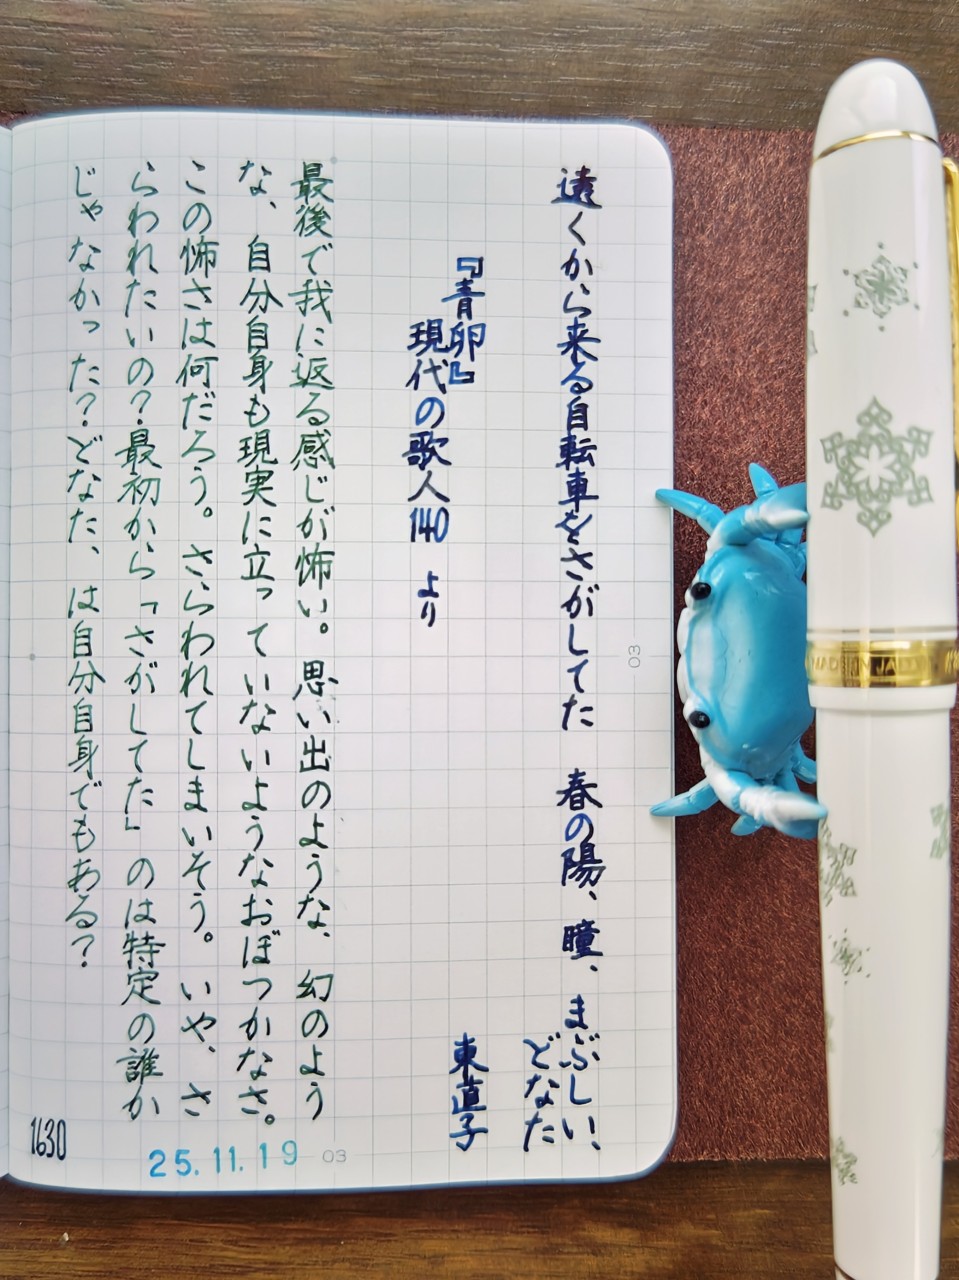 遠くから来る自転車をさがしてた　春の陽、瞳、まぶしい、
どなた
『青卵』
東直子
現代の歌人140　より
最後で我に返る感じが怖い。思い出のような、幻のよう
な、自分自身も現実に立っていないようなおぼつかなさ。
この怖さは何だろう。さらわれてしまいそう。いや、さ
らわれたいの？最初から「さがしてた」のは特定の誰か
じゃなかった？どなた、は自分自身でもある？
1630
25.11.19
03
03